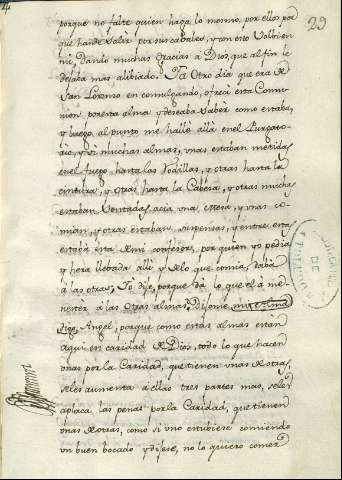 29
porque no falte quien haga lo mesmo, por ellos por
que han de salir por sus cabales, y con esto Volví en
mi, Dando muchas gracias à Dios, que al fin le
dejaba mas alibiado. Ya Otro dia que era de
San Lorenzo en comulgando, ofreci esta Comu-
nion por esta alma y deseaba saber como estaba,
y luego al punto me hallè allà en el Purgato-
rio, y vi muchas almas, unas estaban metidas
en el fuego hasta las rodillas, y otras hasta la
cintura, y otras hasta la Cabeza, y otras muchas
estaban sentadas a una mesa, y unas co-
mian, y otras estaban suspensas, y entre estas
estaba esta de mi confesor, por quien yo pedia
y hera llebada alli y de lo que comia, daba
à las otras; Yo dije, porque dà lo que el à me-
nester à las otras almas? dijome
Angel, porque como estas almas estàn
aqui en caridad de Dios, todo lo que hacen
unas por la Caridad, que tienen unas à otras,
se les aumenta à ellas tres partes mas, se les
aplaca las penas por la Caridad, que tienen
unas à otras, como si uno estubiese comiendo
un buen bocado y dijese, no lo quiero comer